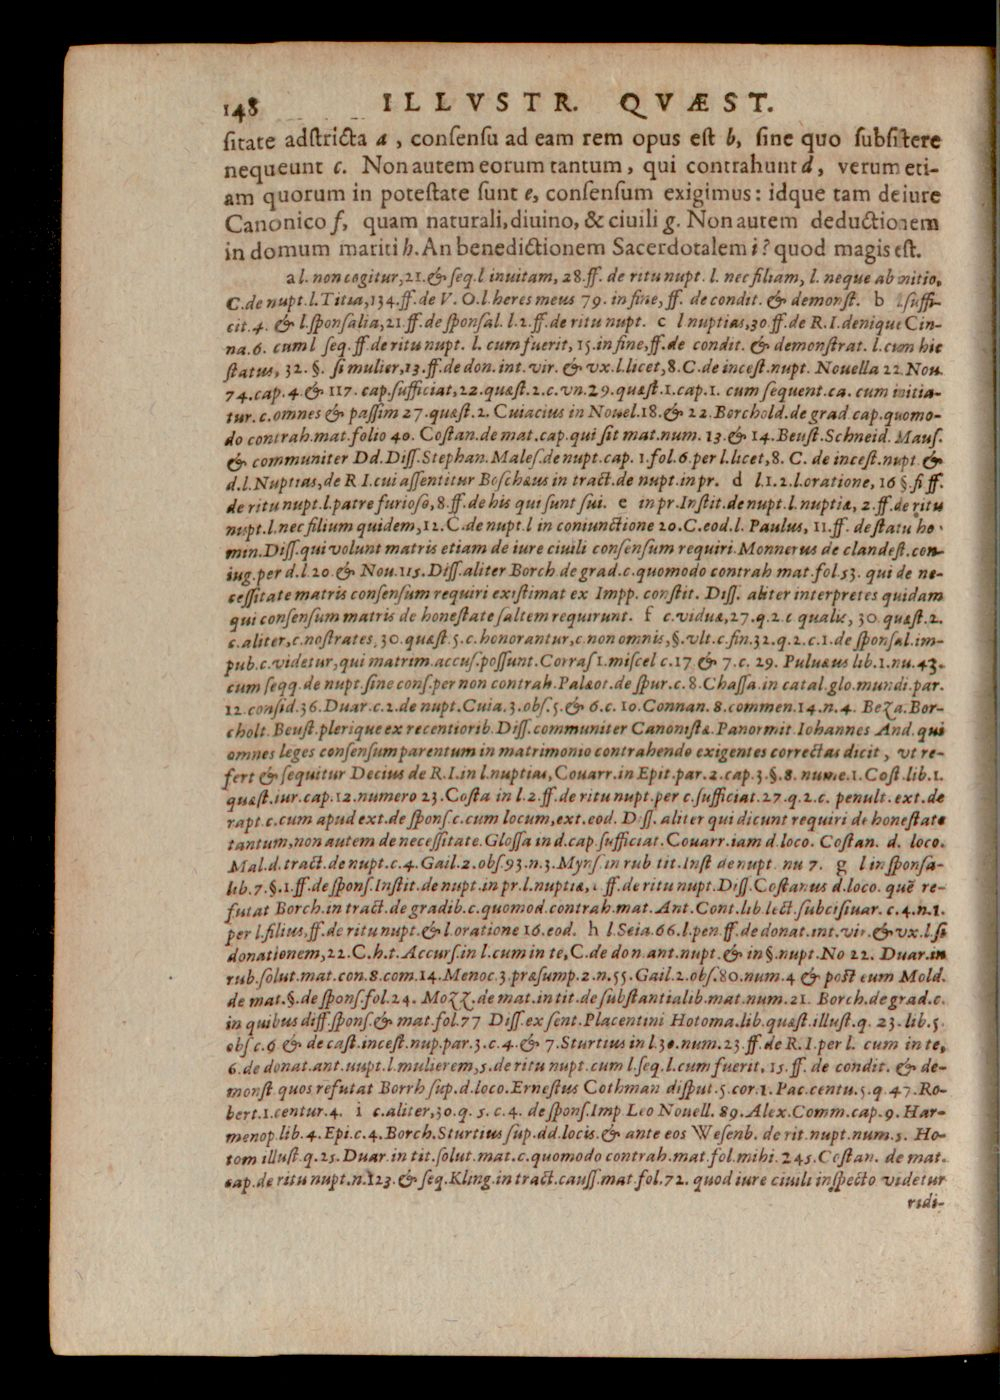 148 ILLVSTR. QVÆST.
sitate adstricta a, consensu ad eam rem opus est b, sine quo subsistere
nequeunt c. Non autem eorum tantum, qui contrahunt d, verum eti-
am quorum in potestate sunt e, consensum exigimus: idque tam de iure
Canonico f, quam naturali, diuino, & ciuili g. Non autem deductionem
in domum mariti h. An benedictionem Sacerdotalem i? quod magis est.
a l. non cogitur, 21. & seq. l inuitam, 28. ff. de ritu nupt. l. nec filiam, l. neque ab initio,
C. de nupt. l. Titia, 134. ff. de V. O. l. heres meus 79. in fine, ff. de condit. & demonst. b l. suffi-
cit. 4. & l. sponsalia, 21. ff. de sponsal. l. 2. ff. de ritu nupt. c l nuptias, 30. ff. de R. I. denique Cin-
na. 6. cum l seq. ff. de ritu nupt. l. cum fuerit, 15. in fine, ff. de condit. & demonstrat. l. cum hic
status, 32. §. si mulier, 13. ff. de don. int. vir. & vx. l. licet, 8. C. de incest. nupt. Nouella 22. Nou.
74. cap. 4. & 117. cap. sufficiat, 22. quæst. 2. c. vn. 29. quæst. 1. cap. 1. cum sequent. ca. cum initia-
tur. c. omnes & passim 27. quæst. 2. Cuiacius in Nouel. 18. & 22. Borchold. de grad. cap. quomo-
do contrah. mat. folio 40. Costan. de mat. cap. qui sit mat. num. 13. & 14. Beust. Schneid. Maus.
& communiter Dd. Diss. Stephan. Males. de nupt. cap. 1. fol. 6. per l. licet, 8. C. de incest. nupt. &
d. l. Nuptias, de R. I. cui assentitur Boschæus in tract. de nupt. in pr. d l. 1. 2. l. oratione, 16 §. si ff.
de ritu nupt. l. patre furioso, 8. ff. de his qui sunt sui. e in pr. Instit. de nupt. l. nuptiæ, 2. ff. de ritu
nupt. l. nec filium quidem, 12. C. de nupt. l in coniunctione 20. C. eod. l. Paulus, 11. ff. de statu ho-
min. Diss. qui volunt matris etiam de iure ciuili consensum requiri. Monnerus de clandest. con-
iug. per d. l. 20. & Nou. 115. Diss. aliter Borch de grad. c. quomodo contrah mat. fol. 53. qui de ne-
cessitate matris consensum requiri existimat ex Impp. constit. Diss. aliter interpretes quidam
qui consensum matris de honestate saltem requirunt. f c. viduæ, 27. q. 2. c qualis, 30. quæst. 2.
c. aliter, c. nostrates, 30. quæst. 5. c. honorantur, c. non omnis, §. vlt. c. fin. 32. q. 2. c. 1. de sponsal. im-
pub. c. videtur, qui matrim. accus. possunt. Corras 1. miscel c. 17. & 7. c. 29. Puluæus lib. 1. nu. 43.
cum seqq. de nupt. sine cons. per non contrah. Palæot. de spur. c. 8. Chassa. in catal. glo. mundi. par.
12. consid. 36. Duar. c. 2. de nupt. Cuia. 3. obs. 5. & 6. c. 10. Connan. 8. commen. 14. n. 4. Beza. Bor-
cholt. Beust. plerique ex recentiorib. Diss. communiter Canonistæ. Panormit Iohannes And. qui
omnes leges consensum parentum in matrimonio contrahendo exigentes correctas dicit, vt re-
fert & sequitur Decius de R. I. in l. nuptias, Couarr. in Epit. par. 2. cap. 3. §. 8. nume. 1. Cost. lib. 1.
quæst. iur. cap. 12. numero 23. Costa in l. 2. ff. de ritu nupt. per c. sufficiat. 27. q. 2. c. penult. ext. de
rapt. c. cum apud ext. de spons. c. cum locum, ext. eod. Diss. aliter qui dicunt requiri de honestate
tantum, non autem de necessitate. Glossa in d. cap. sufficiat. Couarr. iam d. loco. Costan. d. loco.
Mal. d. tract. de nupt. c. 4. Gail. 2. obs. 93. n. 3. Myns. in rub tit. Inst de nupt. nu 7. g l in sponsa-
lib. 7. §. 1. ff. de spons. Instit. de nupt. in pr. l. nuptiæ, ff. de ritu nupt. Diss. Costanus d. loco. quē re-
futat Borch. in tract. de gradib. c. quomod. contrah. mat. Ant. Cont. lib lect. subcisiuar. c. 4. n. 1.
per l. filius, ff. de ritu nupt. & l. oratione 16. eod. h l. Seia. 66. l. pen. ff. de donat. int. vir. & vx. l. si
donationem, 22. C. h. t. Accurs. in l. cum in te, C. de don ant. nupt. & in §. nupt. No 22. Duar. in
rub. solut. mat. con. 8. com. 14. Menoc. 3. præsump. 2. n. 55. Gail. 2. obs. 80. num. 4 & post eum Mold.
de mat. §. de spons. fol. 24. Mozz. de mat. in tit. de substantialib. mat. num. 21. Borch. de grad. c.
in quibus diff. spons. & mat. fol. 77 Diss. ex sent. Placentini Hotoma. lib. quæst. illust. q. 23. lib. 5.
obs c. 6 & de cast. incest. nup. par. 3. c. 4. & 7. Sturtius in l. 30. num. 23. ff. de R. I. per l. cum in te,
6. de donat. ant. nupt. l. mulierem, 5. de ritu nupt. cum l. seq. l. cum fuerit, 15. ff. de condit. & de-
monst. quos refutat Borrh sup. d. loco. Ernestus Cothman disput. 5. cor. 1. Pac. centu. 5. q. 47. Ro-
bert. 1. centur. 4. i c. aliter, 30. q. 5. c. 4. de spons. Imp Leo Nouell. 89. Alex. Comm. cap. 9. Har-
menop. lib. 4. Epi. c. 4. Borch. Sturtius sup. dd. locis. & ante eos Wesenb. de rit. nupt. num. 5. Ho-
tom illust. q. 25. Duar. in tit. solut. mat. c. quomodo contrah. mat. fol. mihi. 245. Costan. de mat.
cap. de ritu nupt. n. 123. & seq. Kling. in tract. causs. mat. fol. 72. quod iure ciuili inspecto videtur
ridi-